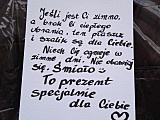 Jeśli jest Ci zimno,
a brak Ci ciepłego
ubrania, ten płaszcz
i szalik są dla Ciebie.
Niech Cię ogrzeje w
zimne dni. Nie obawiaj
się. Śmiało :)
To prezent
specjalnie
dla Ciebie